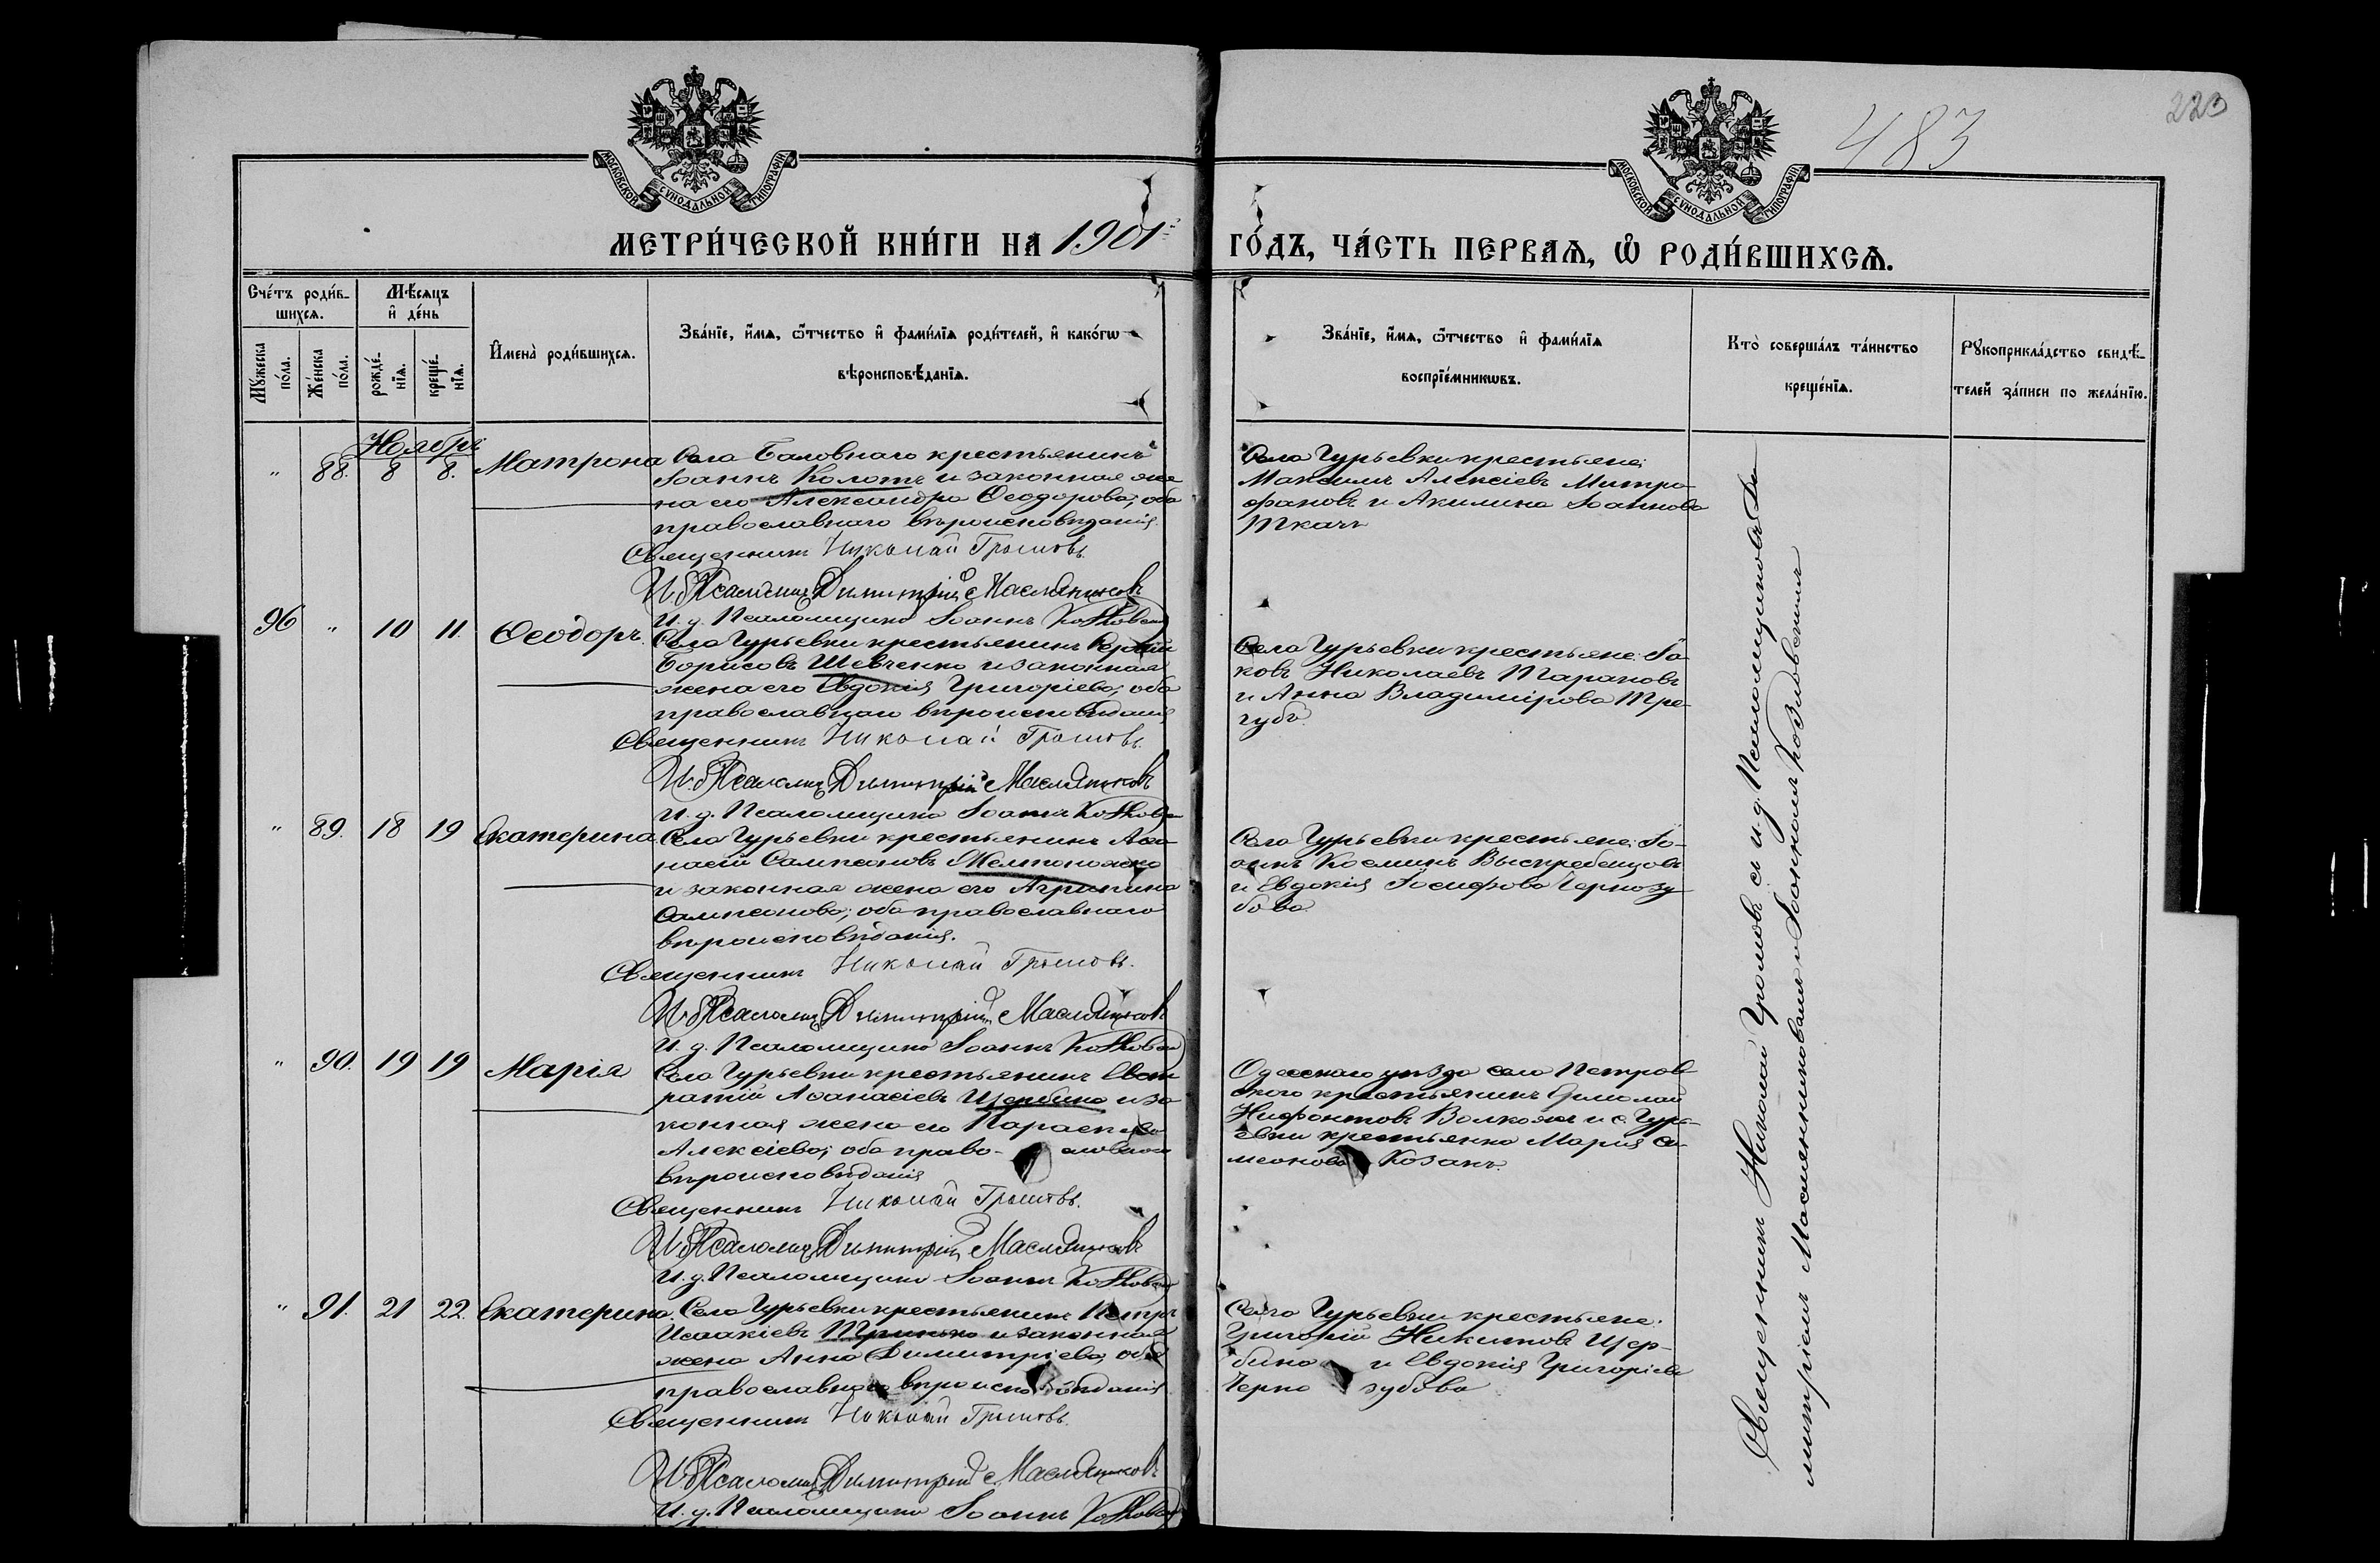 483
223
МОСКОВСКОЙ СѴНОДАЛЬНОЙ ТИПОГРАФІИ
МОСКОВСКОЙ СѴНОДАЛЬНОЙ ТИПОГРАФІИ
МЕТРИ́ЧЕСКОЙ КНИ́ГИ НА 1901 ГО́ДЪ, ЧА́СТЬ ПЕРВАѦ, Ѡ҆ РОДИ́ВШИХСѦ.
Сче́тъ роди́в-
шихсѧ.
Мѣ́сѧцъ
и҆ де́нь
Мꙋ́жеска
по́ла.
Же́нска
по́ла.
рожде́-
нїѧ.
креще́-
нїѧ.
И҆мена̀ роди́вшихсѧ.
Зва́нїе, и҆́мѧ, ѻ҆́тчество и҆ фами́лїѧ роди́телей, и҆ како́гѡ
вѣроисповѣ́данїѧ.
Зва́нїе, и҆́мѧ, ѻ҆́тчество и҆ фами́лїѧ
воспрїе́мникѡвъ.
Кто̀ соверша́лъ та́инство
креще́нїѧ.
Рꙋкоприкла́дство свидѣ́-
телей за́писи по жела́нїю.
Ноябрь
" 88. 8 8. Матрона
Села Баловнаго крестьянинъ
Іоаннъ Колотъ и законная же
на его Александра Ѳеодорова; оба
православнаго вѣроисповѣданія.
Священникъ Николай Громовъ.
И. д. Псаломщ. Димитрій Масляниковъ
И. д. Псаломщика Іоаннъ
Села Гурьевки крестьяне:
Максимъ Алексіевъ Митро-
фановъ и Акилина Іоаннова
Ткачъ
96 " 10 11. Ѳеодоръ.
Села Гурьевки крестьянинъ Сергій
Борисовъ Шевченко и законная
жена его Евдокія Григоріева; оба
православнаго вѣроисповѣданія
Священникъ Николай Громовъ.
И. д. Псаломщ. Димитрій Масляниковъ
И. д. Псаломщика Іоаннъ
Села Гурьевки крестьяне: Іа-
ковъ Николаевъ Тарановъ
и Анна Владимірова Тре-
губъ.
" 89. 18 19 Екатерина
Села Гурьевки крестьянинъ Аѳа
насій Сампсоновъ Желтоножко
и законная жена его Агрипина
Сампсонова; оба православнаго
вѣроисповѣданія.
Священникъ Николай Громовъ.
И. д. Псаломщ. Димитрій Масляниковъ
И. д. Псаломщика Іоаннъ
Села Гурьевки крестьяне: Іо-
аннъ Косминъ Выстребенцовъ
и Евдокія Іосифова Чернозу
бова.
" 90. 19 19 Марія
Села Гурьевки крестьянинъ Евст
ратій Аѳанасіевъ Щербина и за
конная жена его Параскева
Алексіева; оба право- славнаго
вѣроисповѣданія
Священникъ Николай Громовъ.
И. д. Псаломщ. Димитрій Масляниковъ
И. д. Псаломщика Іоаннъ
Одесскаго уѣзда села Петров
скаго крестьянинъ Ермолай
Нифонтовъ Волкожа и с. Гурь-
евки крестьянка Марія Си-
меонова Козакъ.
" 91. 21 22. Екатерина.
Села Гурьевки крестьянинъ Петръ
Исаакіевъ Тринько и законная
жена Анна Димитріева; оба
православнаго вѣроисповѣданія
Священникъ Николай Громовъ.
И. д. Псаломщ. Димитрій Масляниковъ
И. д. Псаломщика Іоаннъ
Села Гурьевки крестьяне:
Григорій Никитовъ Щер-
бина и Евдокія Григоріева
Черно зубова
Священникъ Николай Громовъ съ и. д. Псаломщиковъ Ди
митріемъ Маслянниковымъ и Іоанномъ